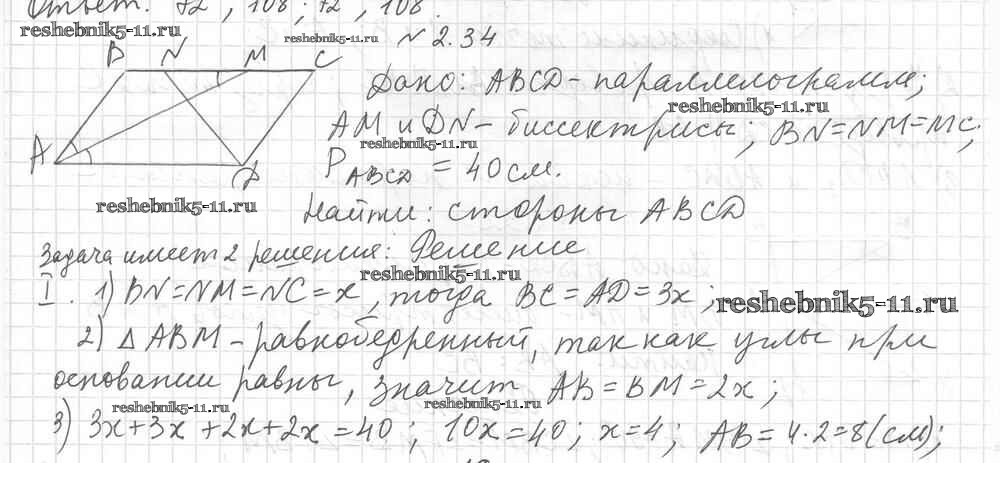 Ответ: 72°, 108°, 72°, 108°.
reshebnik5-11.ru
reshebnik5-11.ru
№ 2.34
B N M C
Дано: ABCD - параллелограмм;
reshebnik5-11.ru
AM и DN - биссектрисы; BN=NM=MC;
reshebnik5-11.ru
A
P ABCD = 40 см.
D
reshebnik5-11.ru
Найти: стороны ABCD
Задача имеет 2 решения: Решение
reshebnik5-11.ru
I. 1) BN=NM=NC=x, тогда BC=AD=3x;
reshebnik5-11.ru
2) △ ABM - равнобедренный, так как углы при
основании равны, значит AB=BM=2x;
reshebnik5-11.ru
reshebnik5-11.ru
3) 3x+3x+2x+2x=40; 10x=40; x=4; AB=4·2=8(см);